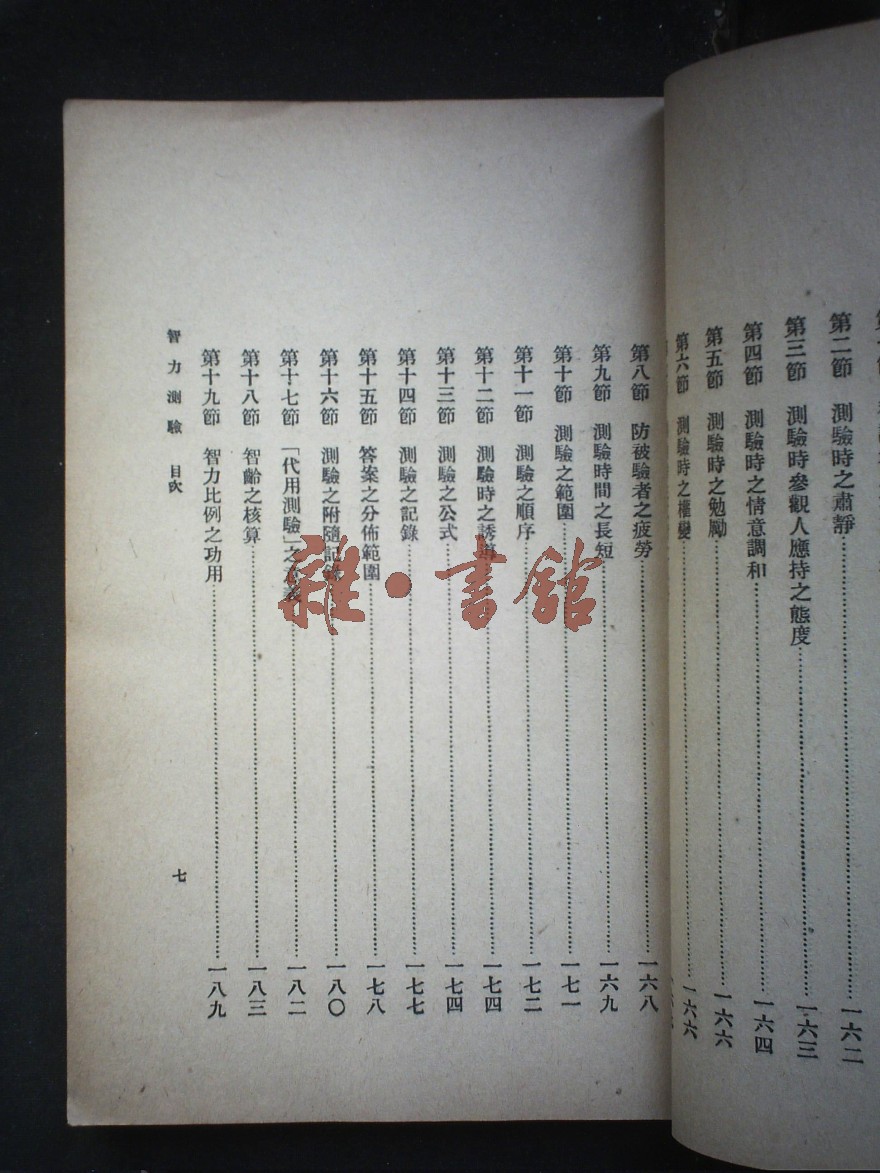 第二節　測驗時之肅靜……一六二
第三節　測驗時參觀人應持之態度……一六三
第四節　測驗時之情意調和……一六四
第五節　測驗時之勉勵……一六六
第六節　測驗時之權變……一六六
第八節　防被驗者之疲勞……一六八
第九節　測驗時間之長短……一六九
第十節　測驗之範圍……一七一
第十一節　測驗之順序……一七二
第十二節　測驗時之誘導……一七四
第十三節　測驗之公式……一七四
第十四節　測驗之記錄……一七七
第十五節　答案之分佈範圍……一七八
第十六節　測驗之附隨記錄……一八〇
第十七節　「代用測驗」之……一八二
第十八節　智齡之核算……一八三
第十九節　智力比例之功用……一八九
智力測驗　目次
七
雜·書館